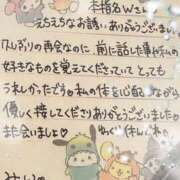 本指名Wさん
えちえちなお誘いありがとうございま
久しぶりの再会なのに、前に話した事や私の
好きなものを覚えてくださってとても
うれしかったです 私の体を心配しながら
優しく接してくださりありがとうございま
また会いましょ